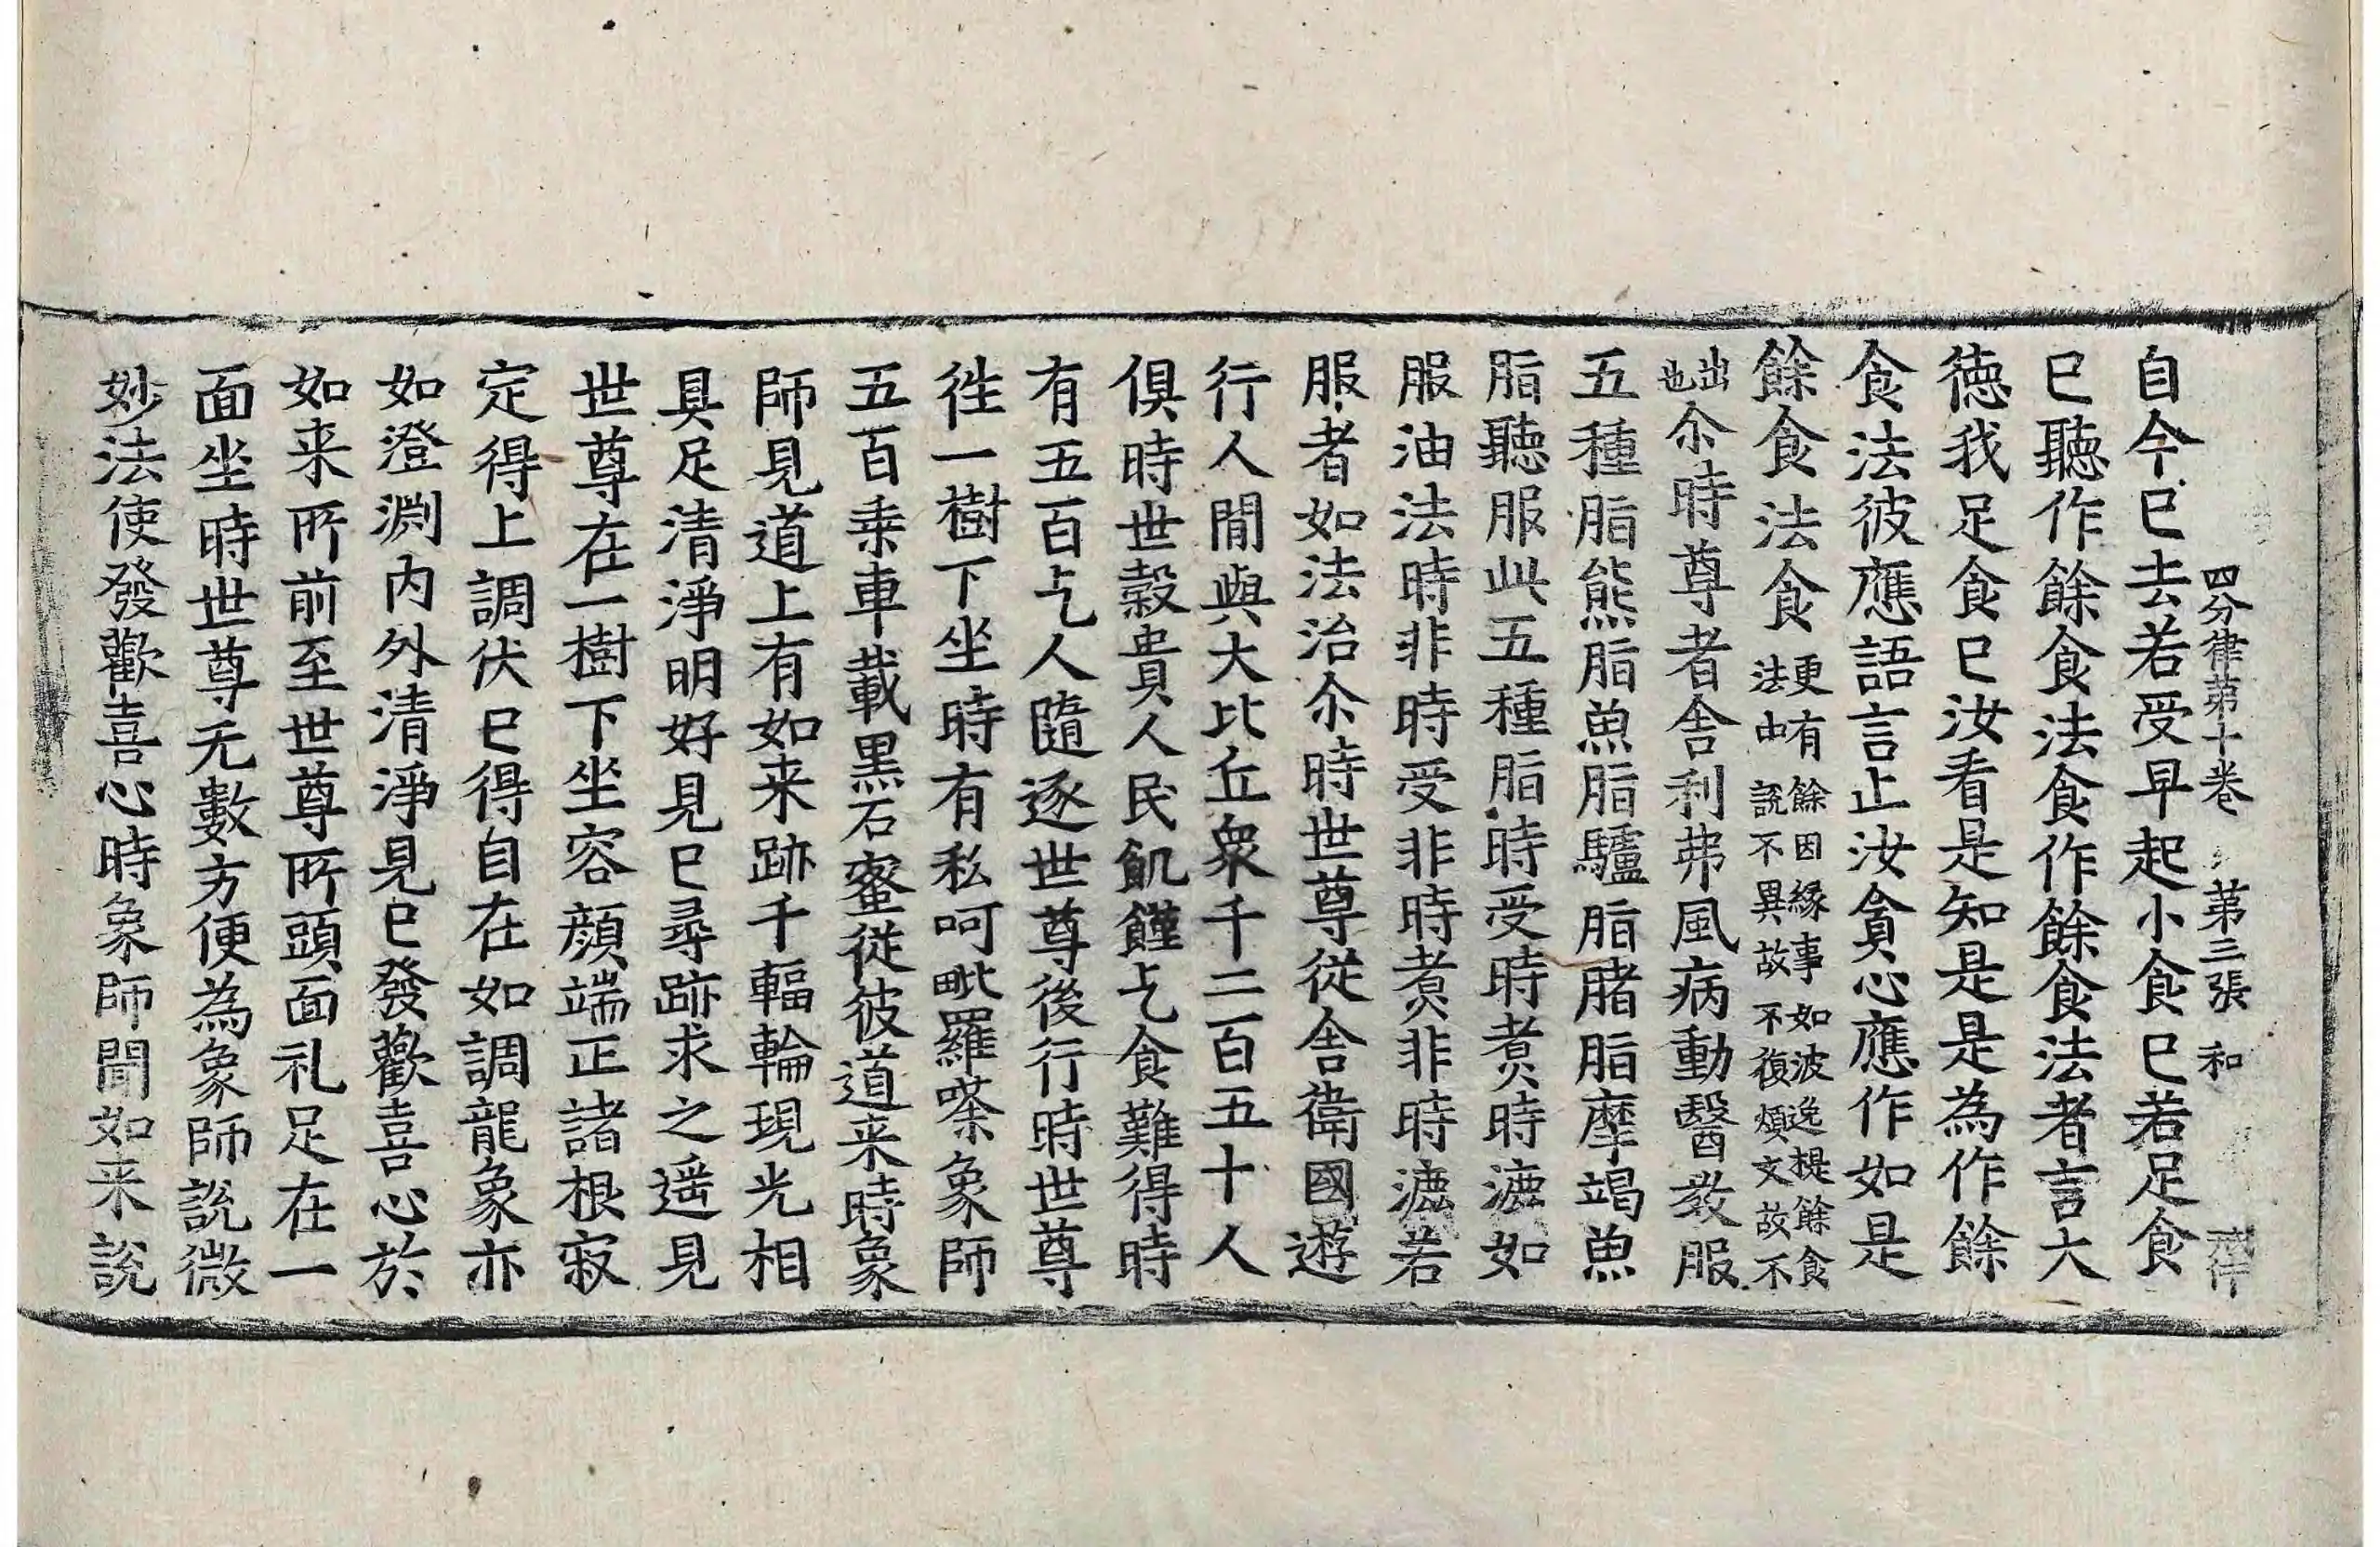 四分律第十卷　第三張　和
自今已去若受早起小食已若足食
已聽作餘食法食作餘食法者言大
德我足食已汝看是知是是為作餘
食法彼應語言止汝貪心應作如是
餘食法食更有餘因緣事如波逸提餘食法由說不異故不復煩文故不
出也尒時尊者舍利弗風病動醫教服
五種脂熊脂魚脂驢脂豬脂摩竭魚
脂聽服此五種脂時受時煮時漉如
服油法時非時受非時煮非時漉若
服者如法治尒時世尊從舍衛國遊
行人間與大比丘眾千二百五十人
俱時世穀貴人民飢饉乞食難得時
有五百乞人隨逐世尊後行時世尊
徃一樹下坐時有私呵毗羅嗏象師
五百乘車載黑石蜜從彼道来時象
師見道上有如来跡千輻輪現光相
具足清淨明好見已尋跡求之遥見
世尊在一樹下坐容顔端正諸根寂
定得上調伏已得自在如調龍象亦
如澄渊内外清淨見已發歡喜心於
如来所前至世尊所頭面礼足在一
面坐時世尊无數方便為象師說微
妙法使發歡喜心時象師聞如来說